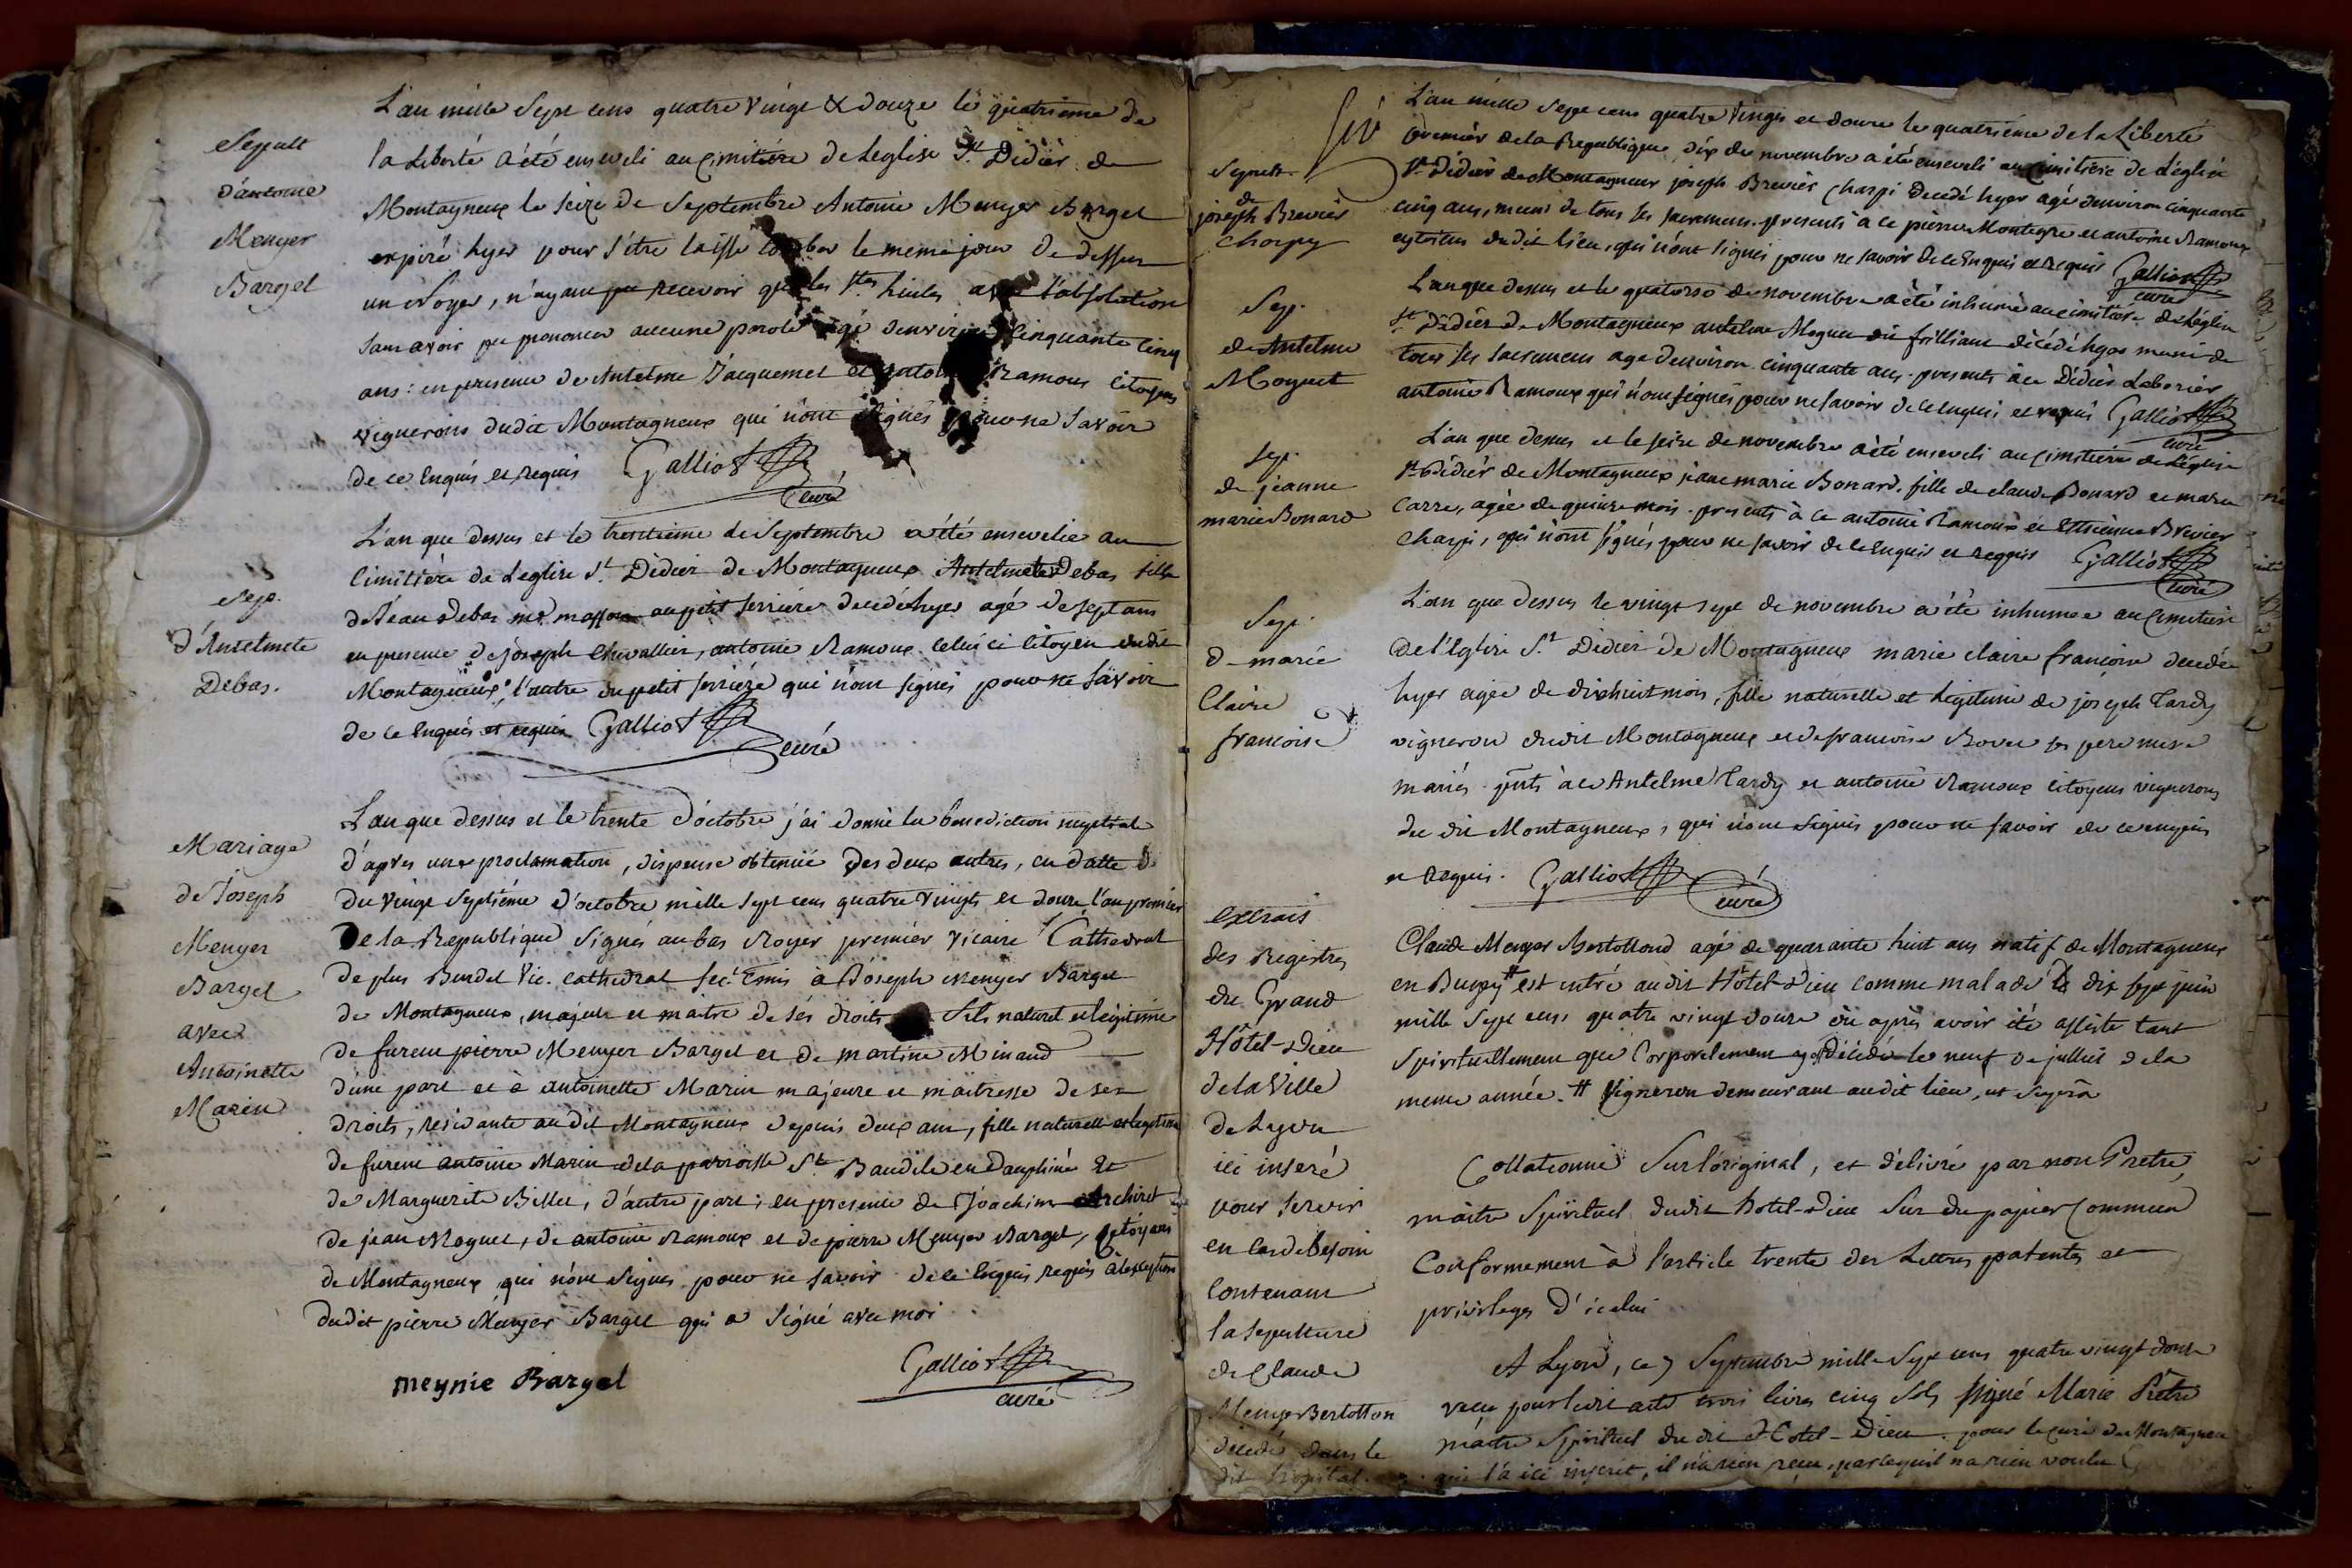 Sepult
d'antoine
Menyer
Bargel
L'an mille Sept cens quatre vingt & douze le quatrieme de
la Liberté a été enseveli au cimitière de Leglise St. Didier de
Montagneux le seize de Septembre Antoine Menyer Bargel
expiré hyer pour s'être laissé tomber le meme jour de dessus
un Noyer, n'ayant pu recevoir que les Stes huiles avec l'absolution
sans avoir pu prononcer aucune parole agé d'environ Cinquante cinq
ans : en presence de Antelme Jacquemet et antoine Ramoux Citoyens
vignerons dudit Montagneux qui n'ont signés pour ne Savoir
de ce Enquis et Requis Galliot
curé
Sep.
d'Anselmete
Debas.
L'an que dessus et le trentieme de Septembre a été ensevelie au
Cimitière de Leglise St. Didier de Montagneux Antelmete Debas fille
de Jean Debas me masson au petit Serriere decedée hyer agé de sept ans
en presence de joseph Chevallier, antoine Ramoux celui ci Citoyen dudit
Montagneux, l'autre du petit serriéze qui n'ont signés pour ne Savoir
de ce Enquis et requis Galliot
curé
Mariage
de Joseph
Menyer
Bargel
avec
Antoinette
Marin
L'an que dessus et le trente d'octobre j'ai donné la benediction nuptiale
d'apres une proclamation, dispense obtenüe des deux autres, en datte
du vingt Septiéme d'octobre mille sept cens quatre vingts et douze, l'an premier
De la Republique Signés au bas Royer premiér Vicaire Cathedral
de plus Burdel Vic. cathedral sec. Emis à Joseph Menyer Bargel
de Montagneux, majeur et maitre de ses droits fils naturel et légitime
de fureu pierre Menyer Bargel et de martine Minaud
d'une part et à antoinette Marin majeure et maitresse de ses
droits, residante au dit Montagneux depuis deux ans, fille naturelle et legitime
de fureu antoine Marin de la parroisse St Baudile en Dauphiné et
de Marguerite Billet, d'autre part ; en presence de Joachim
de jean Moguet, de antoine Ramoux et de pierre Menyer Bargel, Citoyens
de Montagneux qui n'ont Signés pour ne savoir de ce Enquis requis à l'exception
dudit pierre Menyer Bargel qui a Signé avec moi
meynie Bargel
Galliot
curé
Sepult.
de
joseph Breviér
Charpy
L'an mille Sept cens quatre Vingts et douze le quatriéme de la Liberté
premiér de la Republique, dix de novembre a été enseveli au Cimitiére de L'églisé
St. Didiér de Montagneux joseph Breviér Charpi Decedé hyer agé d'environ cinquante
cinq ans, muni de tous ses sacremens. presents à ce pierre Montegre et antoine Ramoux
cytoiens dudit lieu, qui n'ont signés pour ne savoir de ce Enquis et requis Galliot
curé
Sep.
de Antelme
Moguet
L'an que dessus et le quatorse de novembre a été inhumé au cimitiére de L'églisé
St. Didiér de Montagneux antelme Moguet dit frilliant décédé hyer muni de
tous ses sacremens agé d'environ cinquante ans. presents à ce Didiér Laboriér
antoine Ramoux qui n'ont signés pour ne savoir de ce enquis et requis Galliot
curé
sep.
de jeanne
marie Bonard
L'an que dessus et le seize de novembre a été enseveli au Cimitiére de L'églisé
St. Didiér de Montagneux jeane marie Bonard, fille de claude Bonard et marie
Carre, agée de quinze mois. presents à ce antoine Ramoux et Ettienne Brevier
Charpi, qui n'ont signés pour ne savoir de ce Enquis et requis Galliot
curé
Sep.
de marie
Claire
francoise
L'an que dessus le vingt sept de novembre a été inhumée au Cimitiére
de l'Eglise St. Didiér de Montagneux marie claire francoise decedée
hyer agée de dixhuit mois, fille naturelle et Légitime de joseph Tardy
vigneron dudit Montagneux et de francoise Bovet ses pere mere
mariés. pnts à ce Antelme Tardy et antoine Ramoux Citoyens vignerons
du dit Montagneux, qui n'ont signés pour ne savoir de ce enquis
et Requis. Galliot
curé
Extrais
des Registres
du Grand
Hôtel-Dieu
de la Ville
de Lyon
ici inseré
pour servir
en cas de besoin
contenant
la sepulture
de Claude
Menyer Bertotton
décédé dans le
dit hopital.
Claude Menyer Bertottond agé de quarante huit ans natif de Montagneux
en Bugey # est entré au dit Hôtel-Dieu comme malade le dix sept juin
mille sept cens quatre vingt douze où après avoir été assisté tant
Spirituellement que Corporelement y est Décédé le neuf de juillet de la
meme année. # Vigneron demeurant audit lieu, ut Suprà
Collationné Sur l'original, et délivré par nous Pretre,
maitre Spirituel dudit hotel-Dieu Sur du papier Commun
Conformement à l'article trente des Lettres patentes et
privileges d'icelui
A Lyon, ce 7 Septembre mille Sept cens quatre vingt douze
recu pour ledit acte trois livres cinq Sols signé Marie Prêtre
maitre Spirituel du dit Hotel-Dieu. pour le curé de Montagneu
qui l'a ici inscrit, il n'a rien reçu, parcequ'il n'a rien voulu